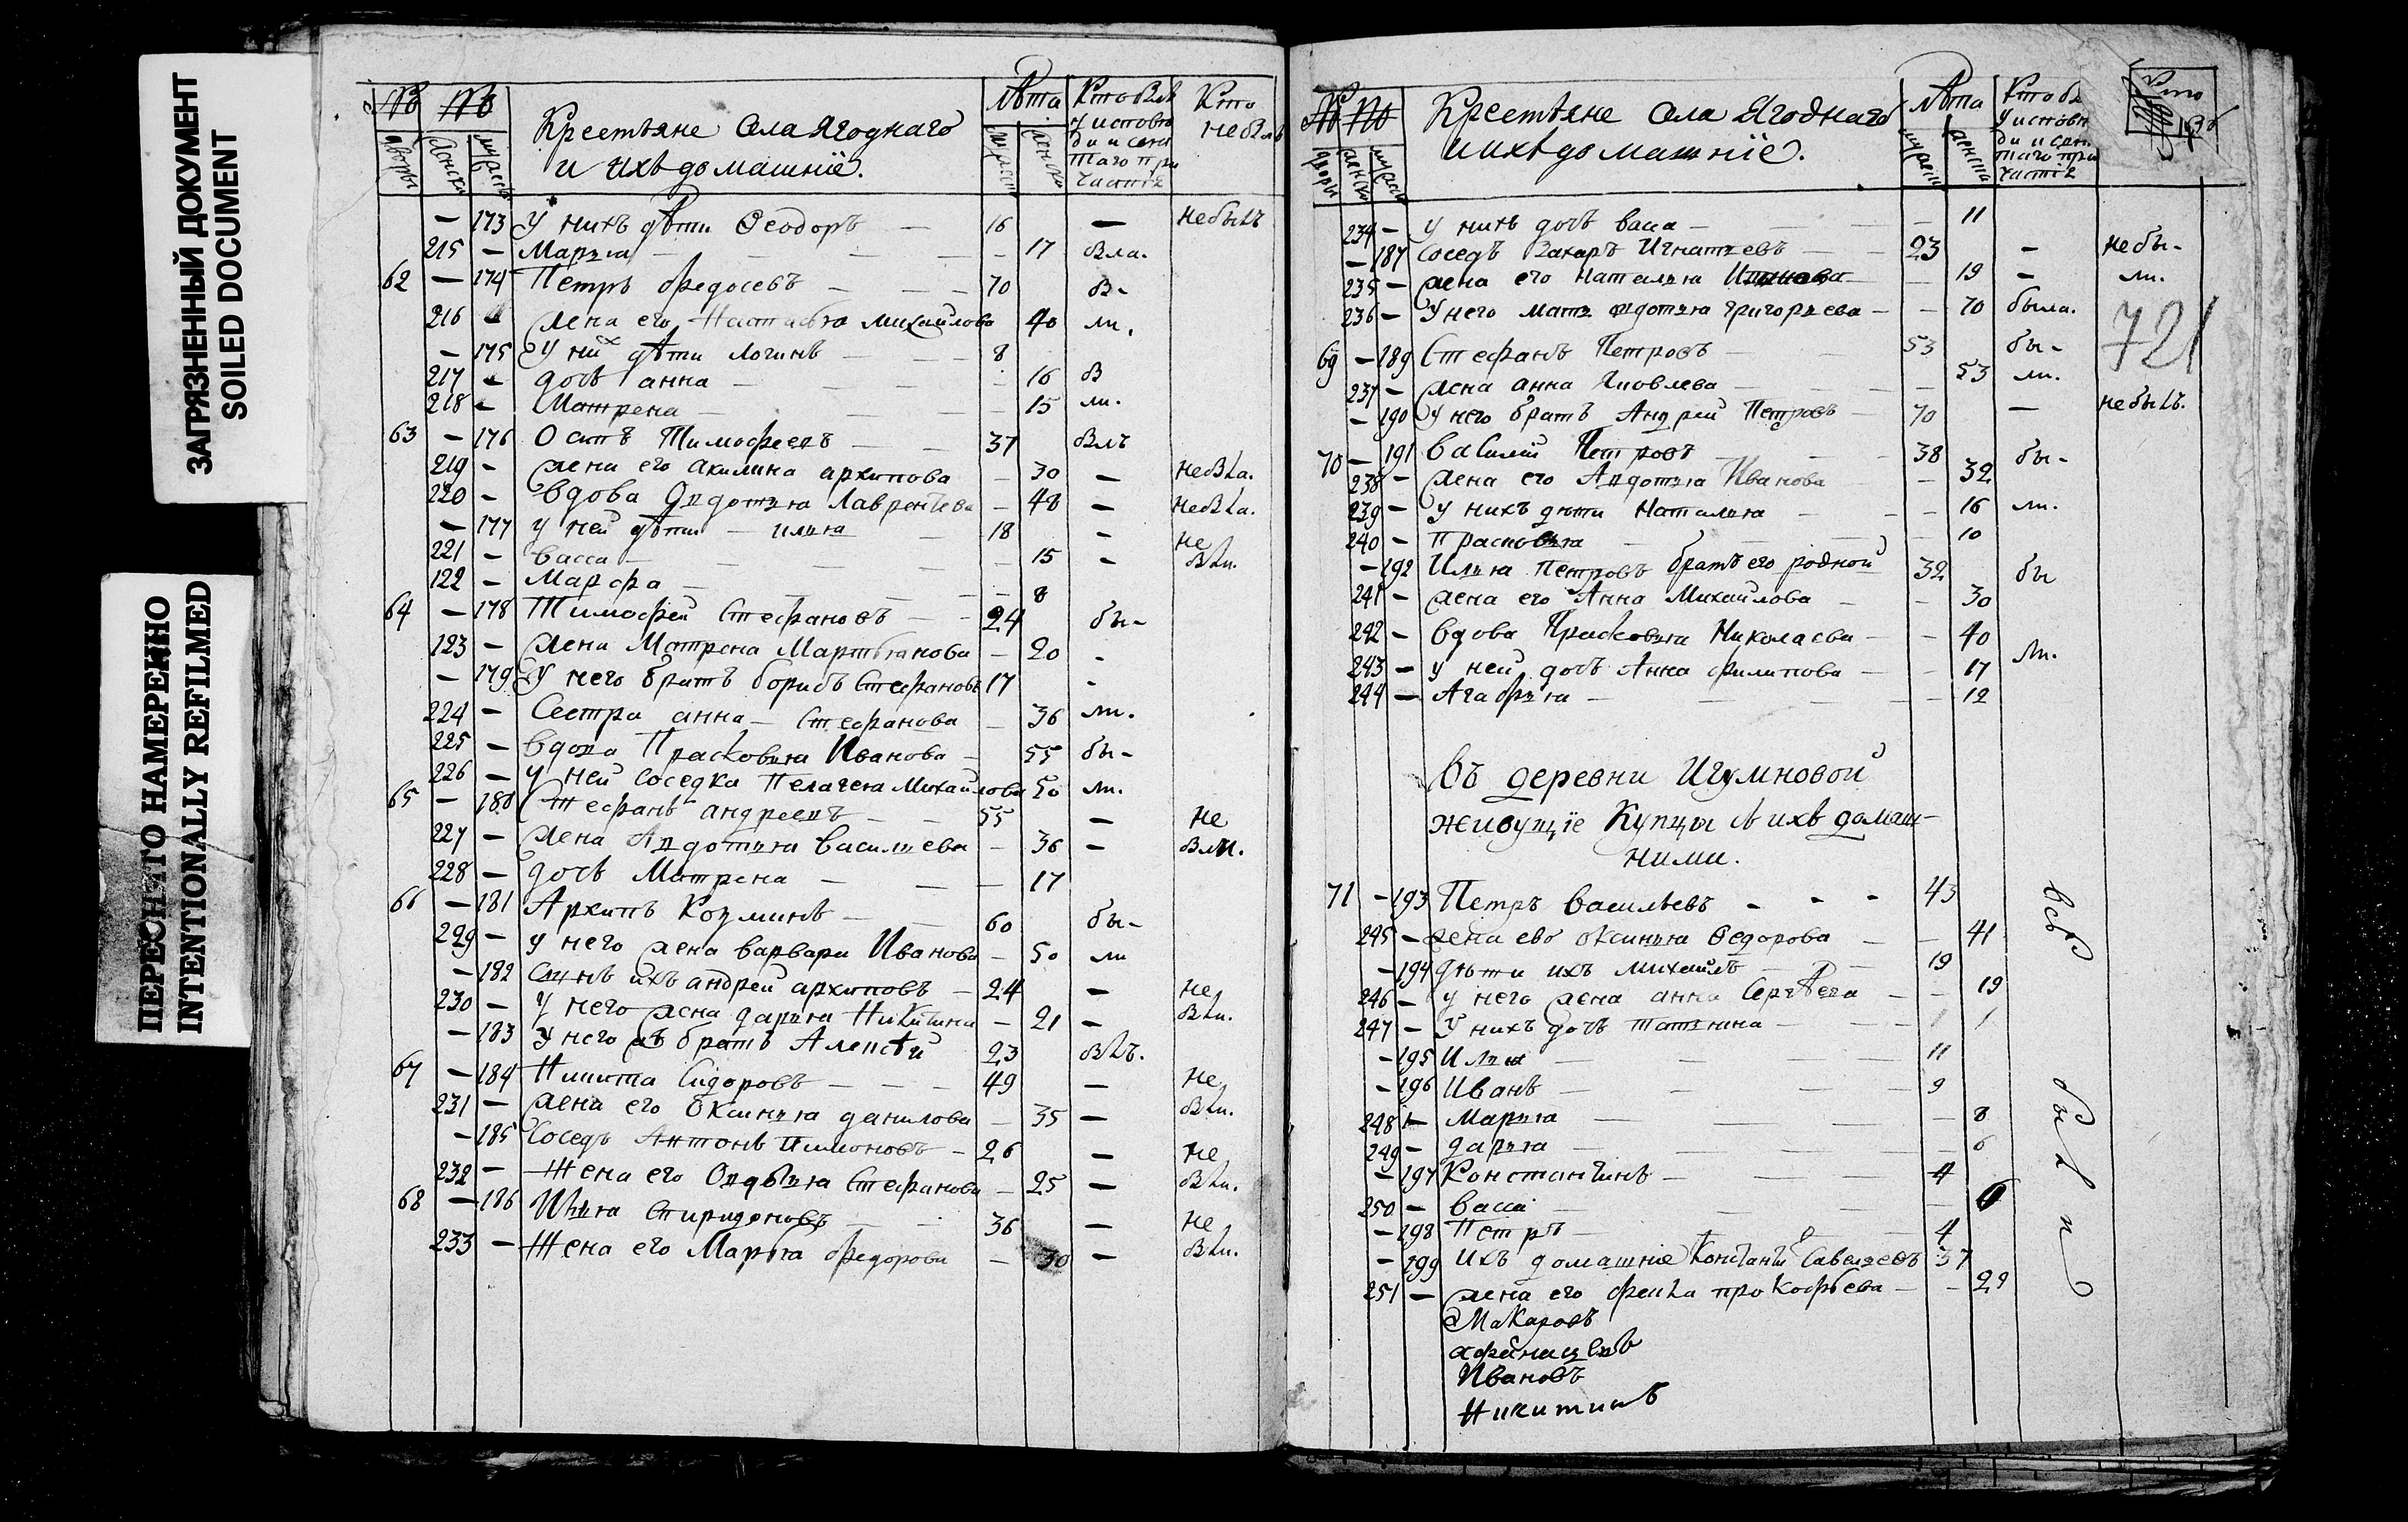 ЗАГРЯЗНЕННЫЙ ДОКУМЕНТ
SOILED DOCUMENT
ПЕРЕСНЯТО НАМЕРЕННО
INTENTIONALLY REFILMED
№ № Крестьяне села Ягоднаго Лѣта Кто был Кто
и ихъ домашнїе. у испове не был
дворы женски мужеск мужеск женска ди и свя
таго при
частія
— 173 У нихъ дѣти Ѳеодоръ — 16 — небылъ
215 — Марья — — 17 была.
62 — 174 Петръ Федосевъ — — 70 б-
216 — жена его Настасья Михайлова 40 ли.
— 175 У них дѣти Логинъ — 8
217 — дочь анна — — 16 б
218 — Матрена — — 15 ли.
63 — 176 Осипъ Тимофеевъ — 37 былъ
219 — жена его акилина архипова — 30 — небыла.
220 — вдова Авдотья Лаврентьева — 48 — небыла.
— 177 у ней дѣти — илья — 18 — не
221 — васса — — 15 — были.
122 — Марфа — — 8
64 — 178 Тимофей Стефановъ — 24 бы-
123 — жена Матрена Мартьянова — 20 -
— 179 У него братъ борисъ Стефановъ 17 -
224 — Сестра анна — Стефанова — 36 ли.
225 — вдова Прасковья Иванова — 55 бы-
226 — у ней соседка Пелагея Михайлова 50 ли.
65 — 180 Стефанъ андреевъ — 55 — не
227 — жена Авдотья васильева — 36 — были.
228 — дочь Матрена — — 17
66 — 181 Архипъ Козминъ — 60 бы-
229 — у него жена варвара Иванова — 50 ли
— 182 сынъ ихъ андрей архиповъ — 24 — не
230 — у него жена дарья Никитина — 21 — были.
— 183 у него братъ Алексѣй 23 былъ.
67 — 184 Никита Сидоровъ — — 49 — не
231 — жена его Оксинья данилова — 35 — были.
— 185 Соседъ Антонъ — 26 — не
232 — Жена его Стефанова — 25 — были.
68 — 186 Илья Спиридоновъ — 36 — не
233 — Жена его Марья Федорова — 30 — были.
№ № Крестьяне села Ягоднаго Лѣта Кто бы Кто
и ихъ домашнїе. у испове
дворы женски мужеск мужеск женска ди и свя
таго при
частія
234 — у нихъ дочь васса — — 11
— 187 Соседъ Захаръ Игнатьевъ — 23 — небы-
235 — жена его Наталья — 19 — ли.
236 — У него мать авдотья григорьева — — 70 была.
721
69 — 189 Стефанъ Петровъ — 53 бы-
237 — жена анна Яковлева — — 53 ли.
— 190 У него братъ Андрей Петровъ — 70 — небылъ.
70 — 191 василий Петровъ — 38 бы-
238 — жена его Авдотья Иванова — 32
239 — у нихъ дѣти Наталья — — 16 ли.
240 — прасковья — — 10
— 192 Илья Петровъ братъ его родной 32 бы
241 — жена его Анна Михайлова — — 30
242 — вдова Прасковья Николаева — — 40
243 — у ней дочь Анна филипова — — 17 ли.
244 — Агафья — — 12
въ деревни Игумновой
живущїе Купцы съ ихъ домаш-
ними.
71 — 193 Петръ васильевъ - - - 43 всѣ
245 — жена ево оксинья Ѳедорова — — 41
— 194 дѣти ихъ михайлъ — 19
246 — у него жена анна Сергѣева — — 19
247 — У нихъ дочь татьяна — — 1
— 195 Илья — — 11
— 196 Иванъ — — 9 были
248 — Марья — — 8
249 — дарья — — 6
— 197 Константинъ — — 4
250 — васса — — 6
— 198 Петръ — 4
— 199 Ихъ домашнїе Савельевъ 37
251 — жена его прокофьева — — 29
Макаровъ
Ивановъ
Никитинъ